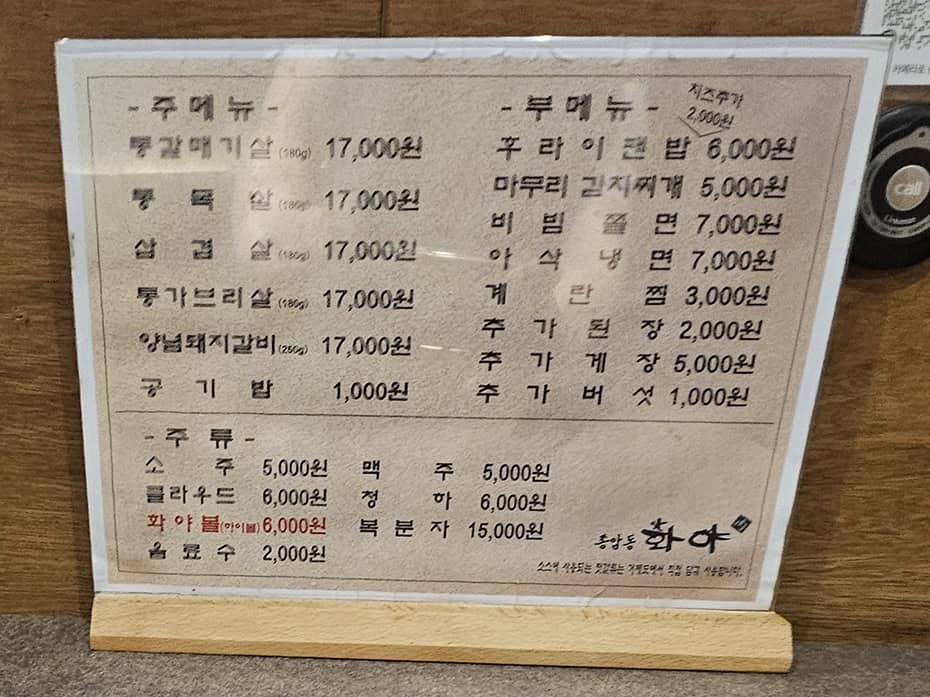 - 주 메 뉴 -
통갈매기살 (180g) 17,000원
통 목 살 (180g) 17,000원
삼 겹 살 (180g) 17,000원
통가브리살 (180g) 17,000원
양념돼지갈비 (250g) 17,000원
공 기 밥 1,000원
- 부 메 뉴 -
치즈추가
2,000원
후 라 이 팬 밥 6,000원
마무리 김치찌개 5,000원
비 빔 쫄 면 7,000원
아 삭 냉 면 7,000원
계 란 찜 3,000원
추 가 된 장 2,000원
추 가 게 장 5,000원
추 가 버 섯 1,000원
- 주 류 -
소 주 5,000원 맥 주 5,000원
클라우드 6,000원 청 하 6,000원
화 야 볼 (하이볼) 6,000원 복 분 자 15,000원
음 료 수 2,000원
종암동 화야
소스에 사용되는 젓갈류는 거제도에서 직접 담궈 사용합니다.
카메라로
call